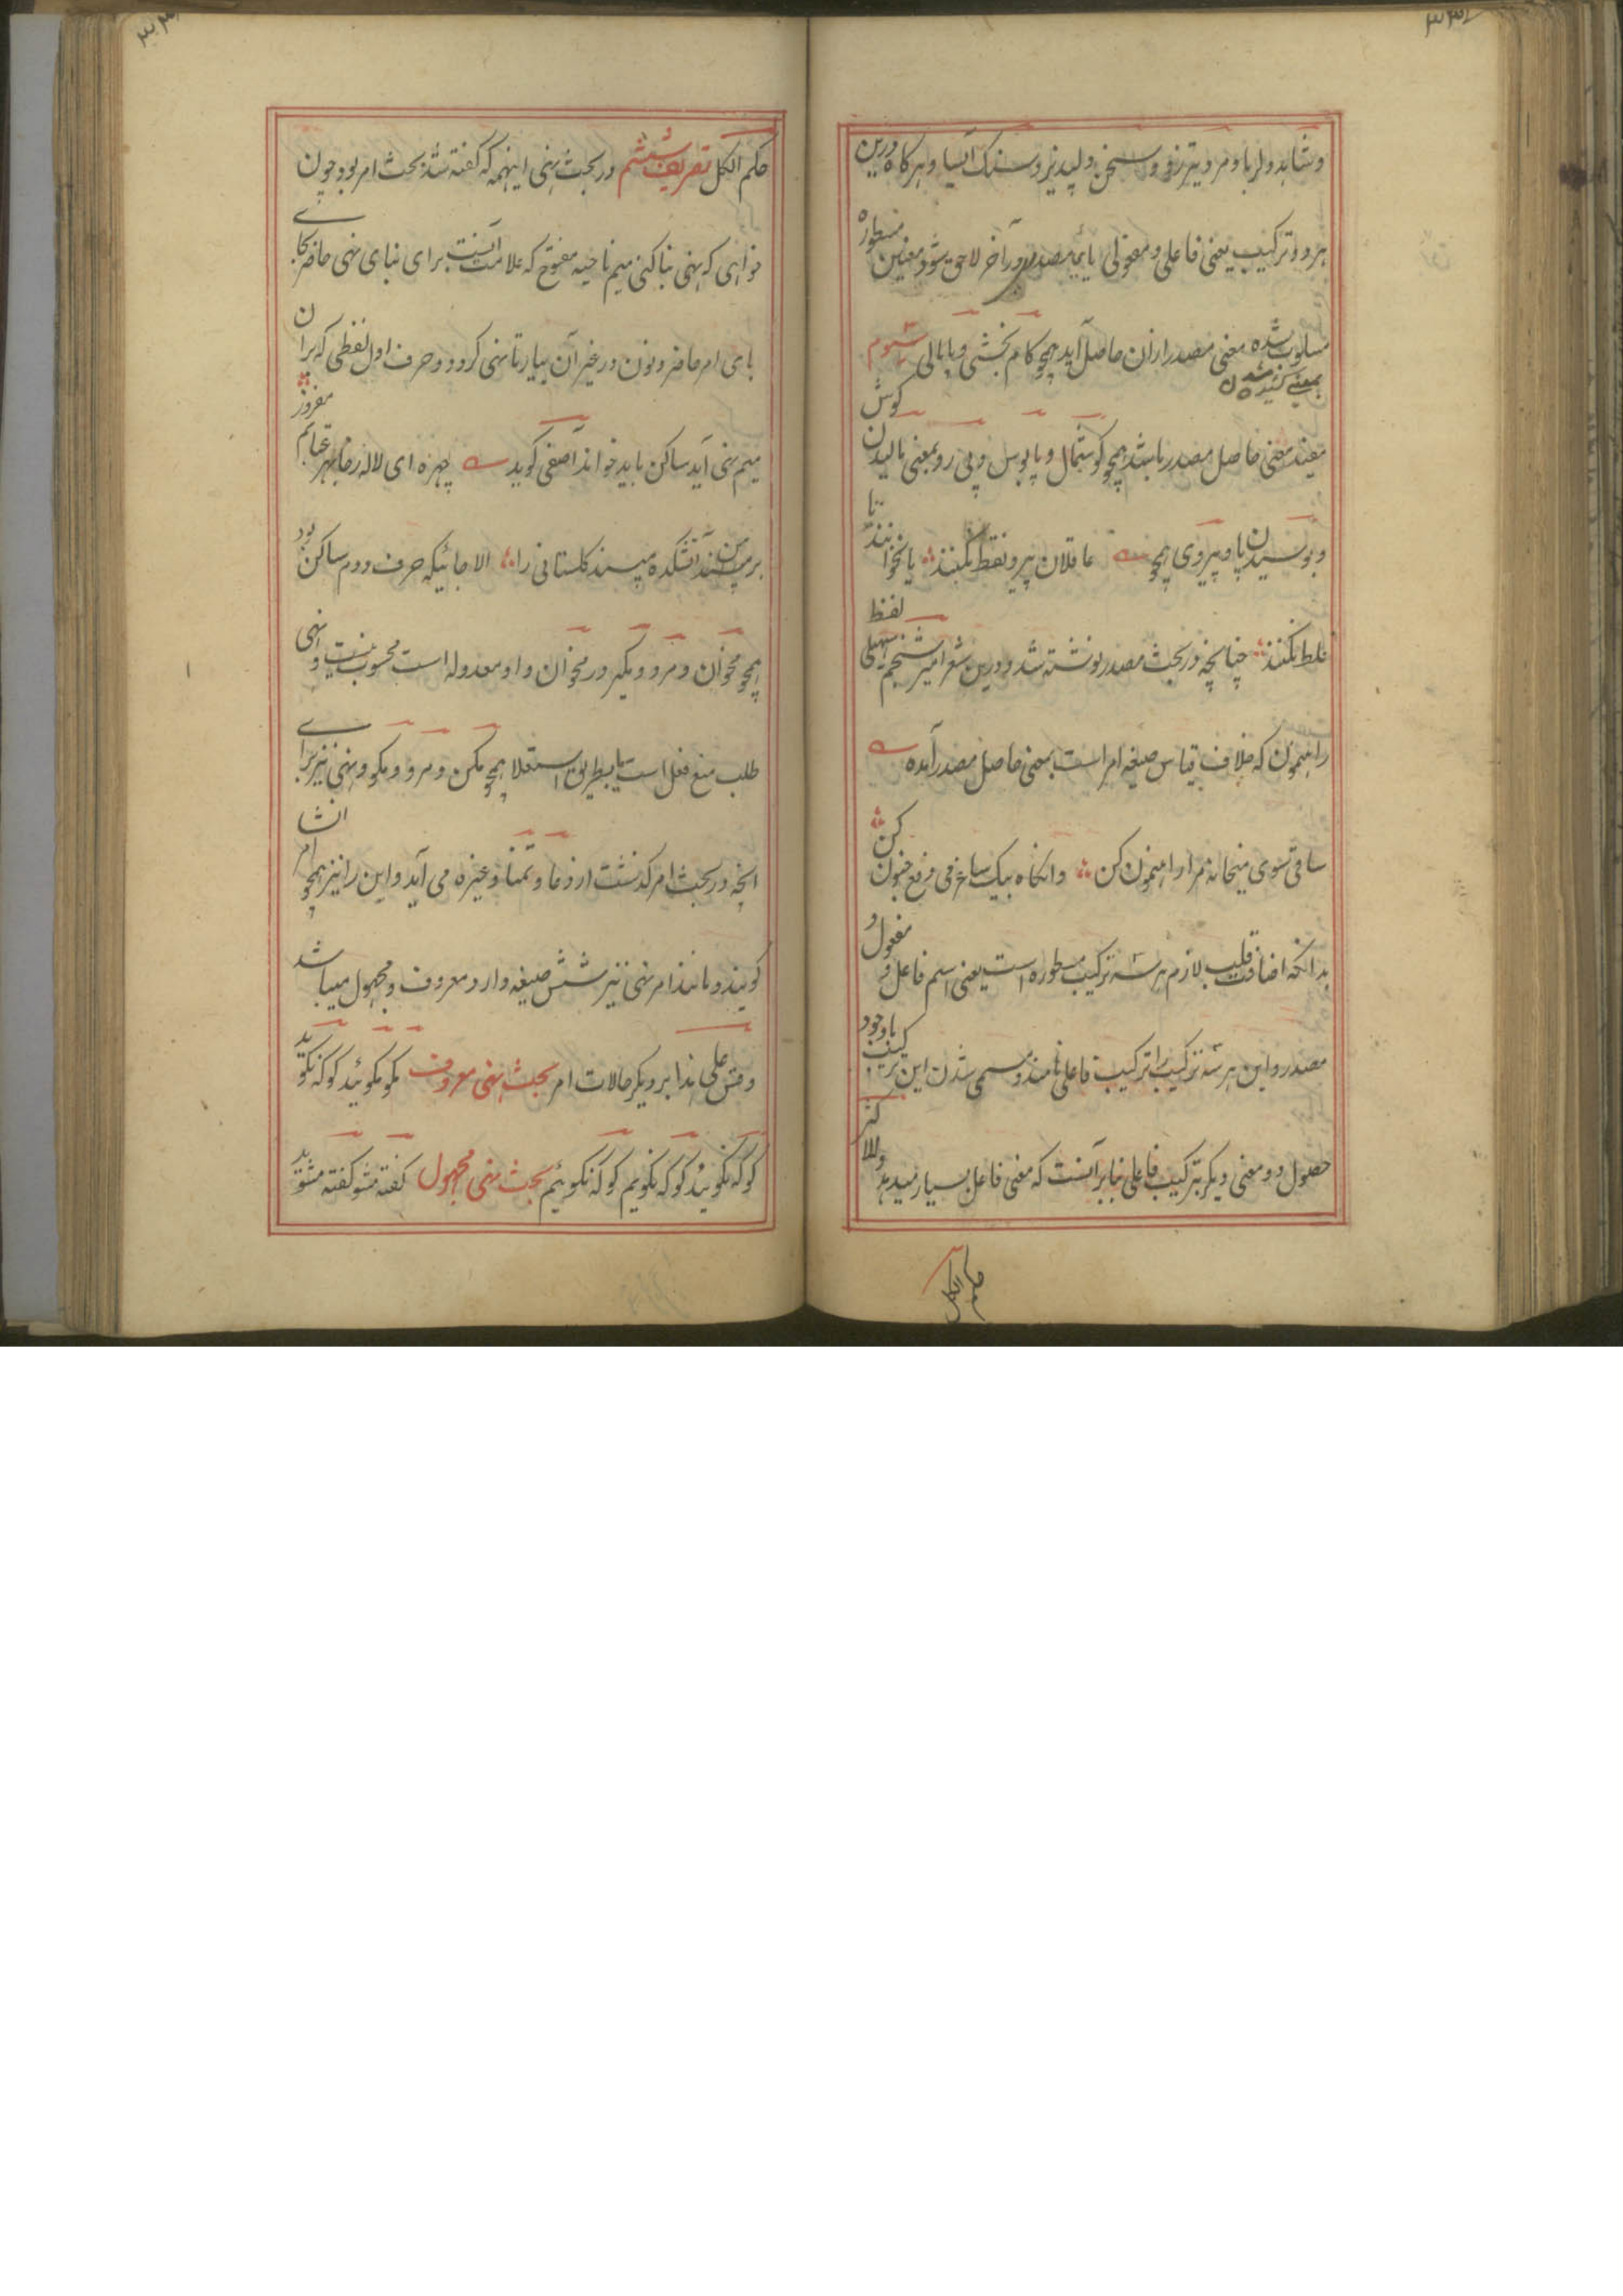 وشاهد دلربا و مرد تیزرو و سخن دلپذیر و سنک آسیا و هرکاه درین
هر دو ترکیب یعنی فاعلی و مفعولی یای مصدر در آخر لاحق شود معنین مسطوره
مسلوب شده معنی مصدر ازان حاصل آید همچو کام بخشی و پامالی سیوم
بمعنی
مفید معنی حاصل مصدر باشد همچو کوشمال و پابوس و پی رو بمعنی مالیدن کوش
و بوسیدن پا و پیروی همچو عاقلان پیرو نقط نکنند یا نخوانند تا
غلط نکنند چنانچه در بحث مصدر نوشته شد و درین شعر امیر سهیلی لفظ
راهنمون که خلاف قیاس صیغه امر است بمعنی حاصل مصدر آمده
ساقی سوی میخانه مرا راهنمون کن وانکاه بیک ساغر می دفع جنون کن
بدانکه اضافت قلب لازم هر سه ترکیب مسطوره است یعنی اسم فاعل و مفعول و
مصدر و این هر سه ترکیب را ترکیب فاعلی نامند و مسمی شدن این ترکیب باوجود
حصول دو معنی دیکر بترکیب فاعلی بنابر آنست که معنی فاعل بسیار میدهد وللاکثر
حکم الکل
حکم الکل تصریف ششم در بحث نهی اینهمه که کفته شد بحث امر بود چون
خواهی که نهی بنا کنی میم ناحیه مفتوح که علامت آنست برای بنای نهی حاضر بجای
بای امر حاضر و نون در غیر آن بیار تا نهی کردد و حرف اول لفظی که بران
میم نهی آید ساکن باید خواند آصفی کوید چهره ای لاله رخا بهر خدایم مفروز
بر من آتشکده مپسند کلستانی را الا جائیکه حرف دوم ساکن بود
همچو مخوان و مرو و مکیر در مخوان واو معدوله است محسوب نیست و نهی
طلب منع فعل است بطریق استعلا همچو مکن و مرو و مکو و نهی نیز برای
انچه در بحث امر کذشت از دعا و تمنا و غیره می آید و این را نیز همچو امر انشا
کویند و مانند امر نهی نیز شش صیغه دارد معروف و مجهول میباشد
وقس علی هذا بر دیکر حالات امر بحث نهی معروف مکو مکوئید کو که نکوید
کو که نکویند کو که نکویم کو که نکوئیم بحث نهی مجهول کفته مشو کفته مشوید